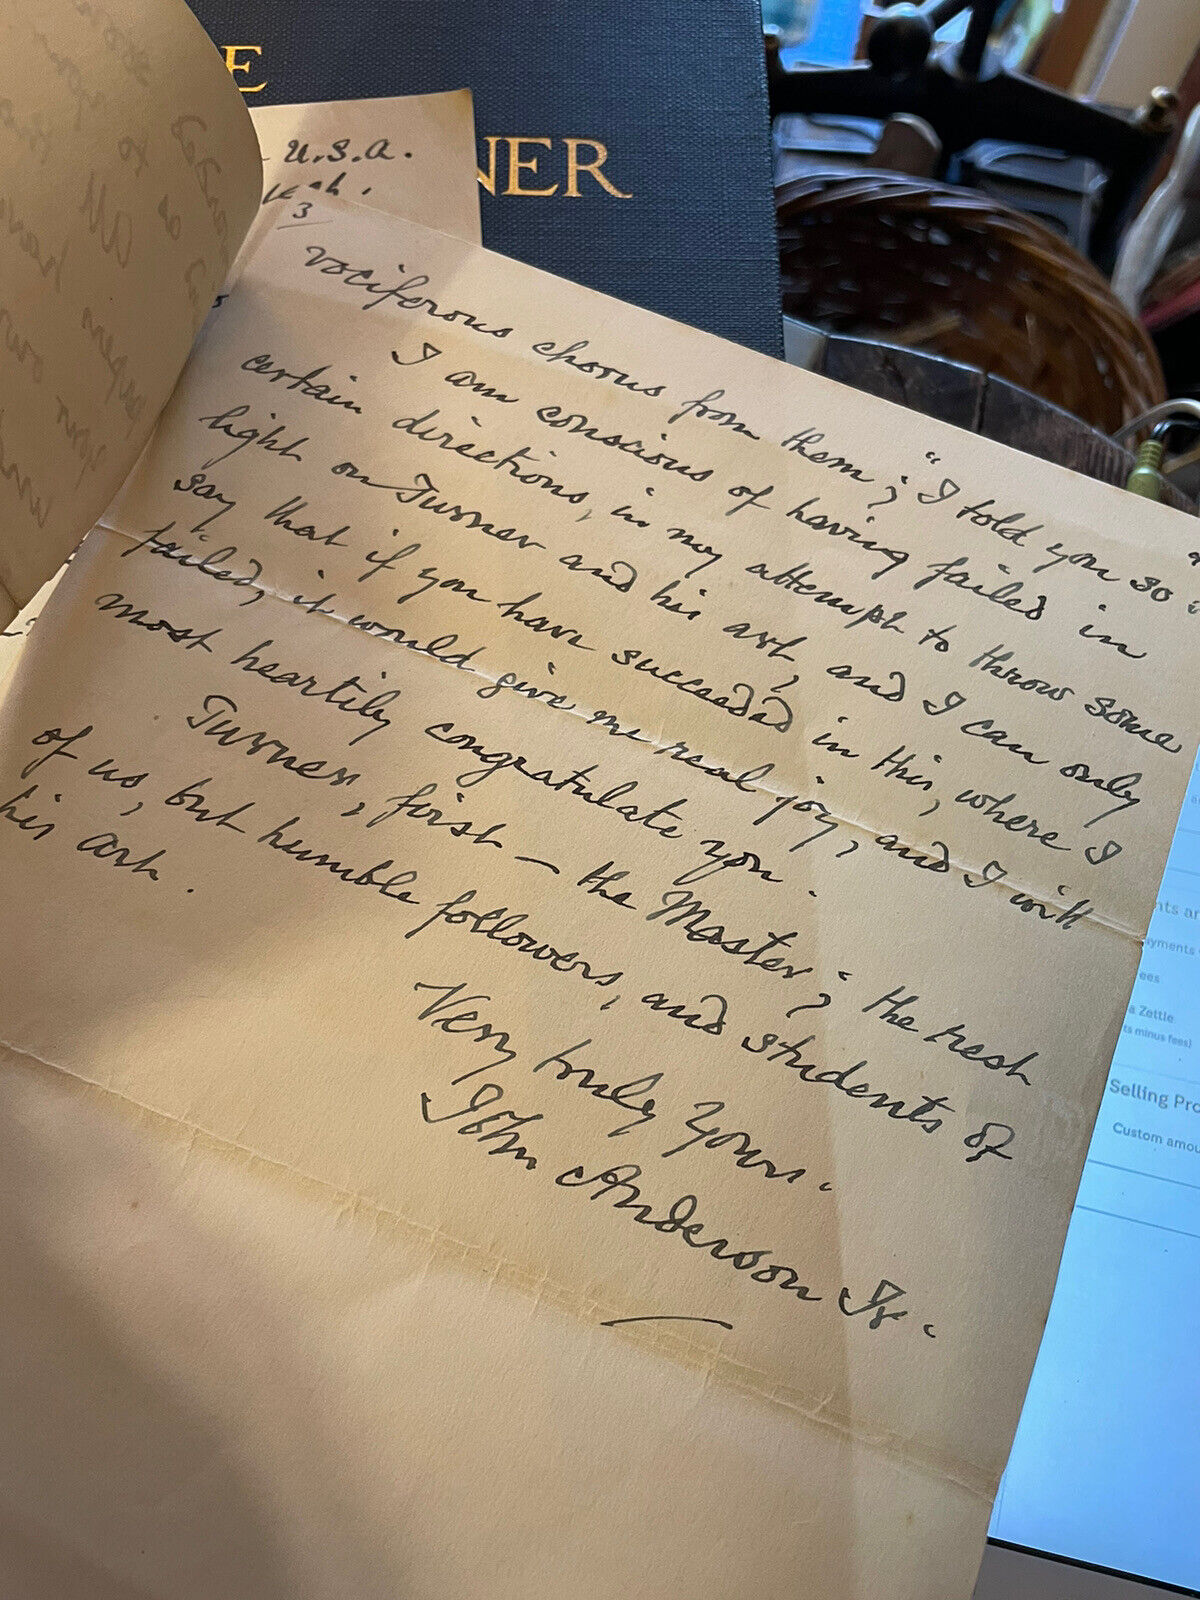 E
NER
U.S.A.
3
vociferous chorus from them; "I told you so
I am conscious of having failed in
certain directions, in my attempt to throw some
light on Turner and his art, and I can only
say that if you have succeeded in this, where I
failed, it would give me real joy, and I will
most heartily congratulate you.
Turner, first — the Master; the rest
of us, but humble followers, and students of
his art.
Very truly yours.
John Anderson Jr.
ayments
ees
a Zettle
ts minus fees)
Selling Pro
Custom amou